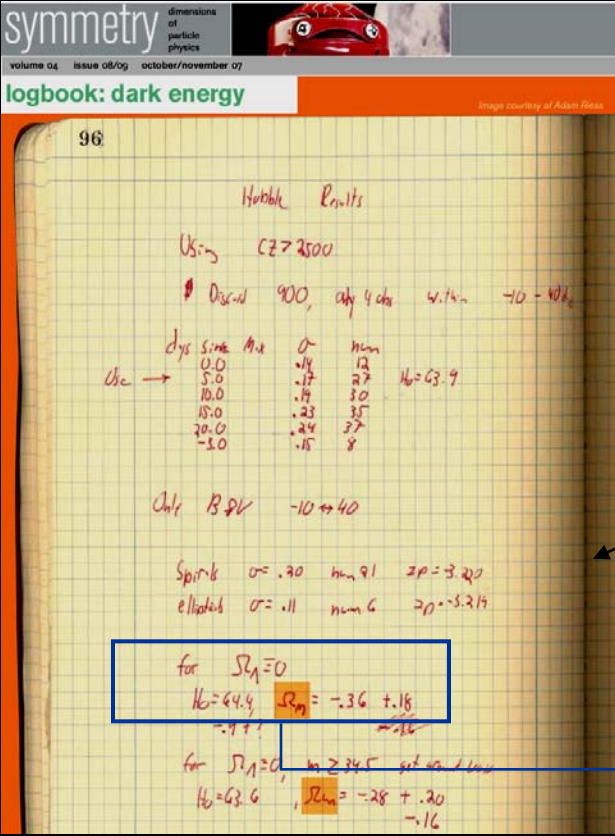 symmetry
dimensions
of
particle
physics
volume 04 issue 08/09 october/november 07
logbook: dark energy
Image courtesy of Adam Riess
96
Hubble Results
Using CZ > 2500
Discard 900, only 4 obs within -10 - 40
dys since Max σ num
0.0 .14 12
Use → 5.0 .17 27 H₀=63.9
10.0 .19 30
15.0 .23 35
20.0 .24 37
-3.0 .15 8
Only B & V -10 ↔ 40
Spirals σ= .20 num 21 zp = -3.220
ellipticals σ= .11 num 6 zp = -3.219
for ΩΛ=0
H₀=64.4, Ωm = -.36 +.18
for ΩΛ=0, m ≥ 34.5 get around
H₀=63.6, Ωm = -.28 + .20
-.16